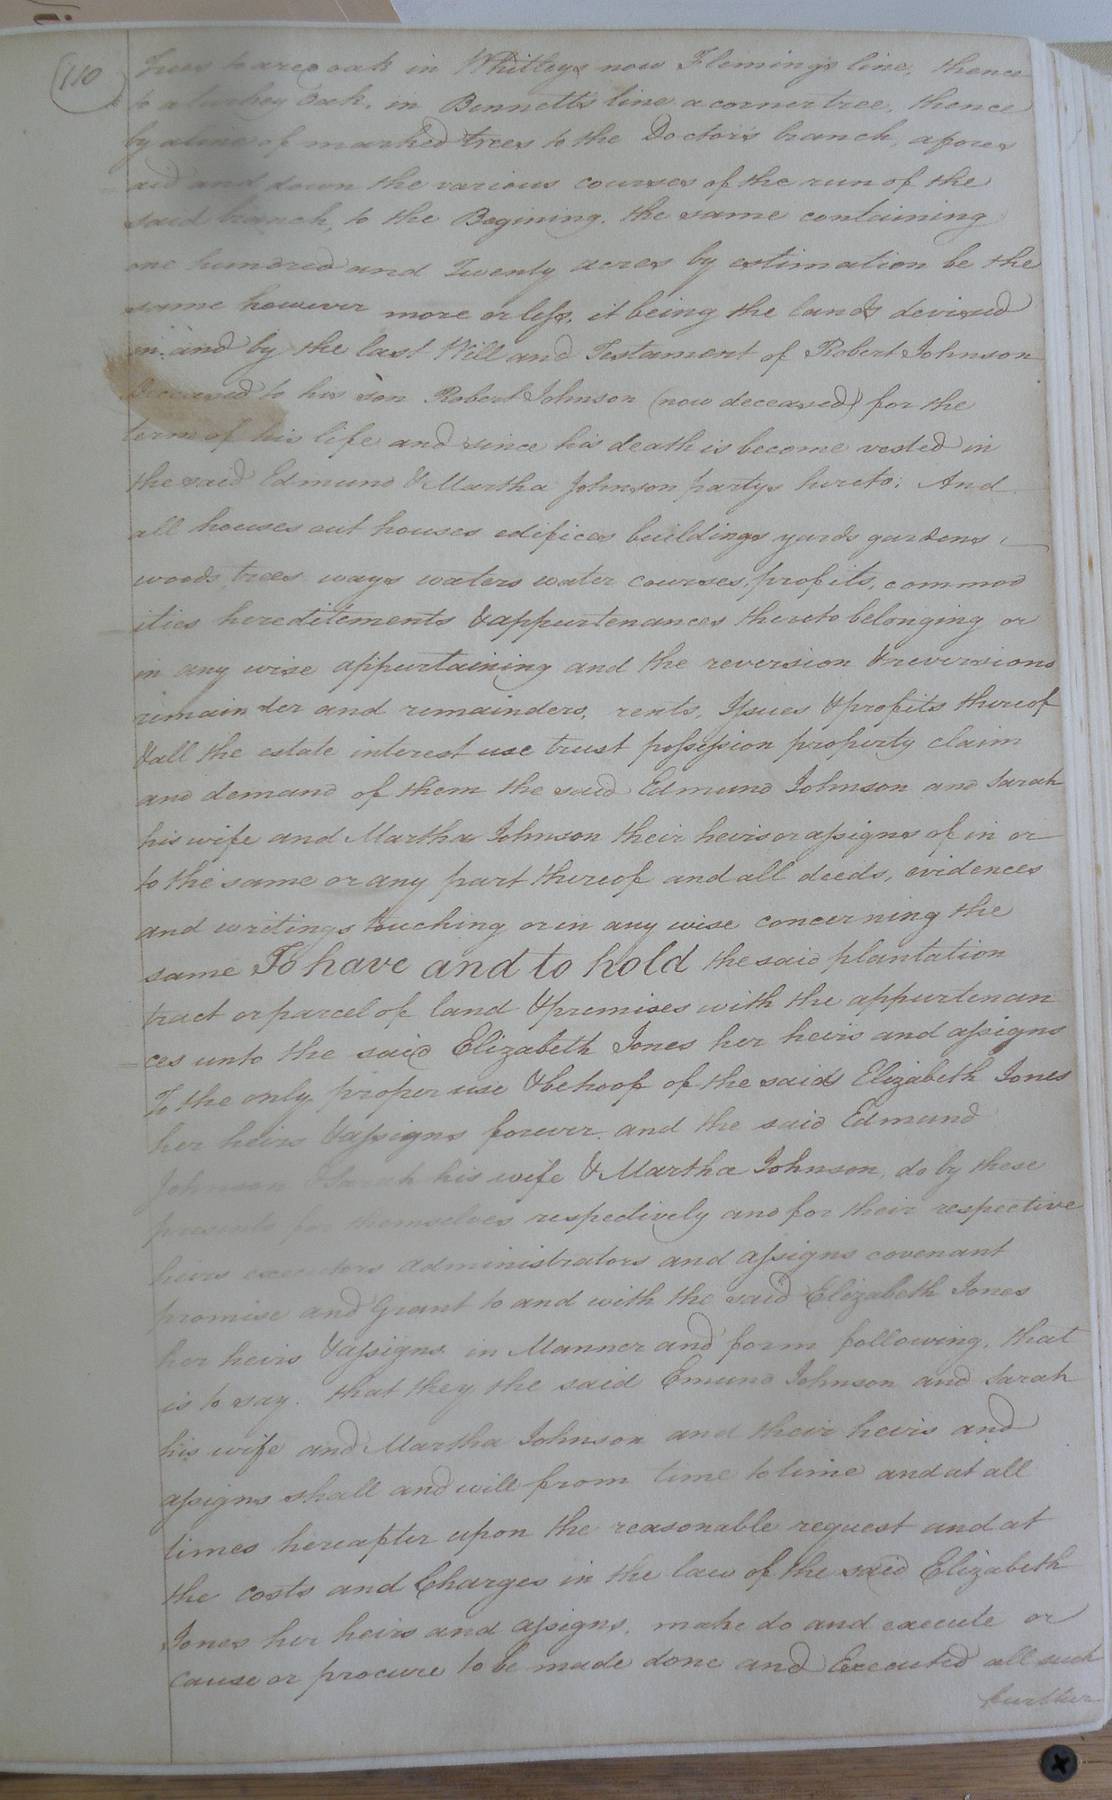 110
trees to a red oak in Whitleys now Flemings line, thence
to a turkey Oak, in Bennetts line a corner tree, thence
by a line of marked trees to the Doctor's branch, afores
aid and down the various courses of the run of the
said branch, to the Begining. the same containing
one hundred and Twenty acres by estimation be the
same however more or less, it being the lands devised
in and by the last Will and Testament of Robert Johnson
Deceased to his son Robert Johnson (now deceased) for the
term of his life and since his death is become vested in
the said Edmund & Martha Johnson partys hereto. And
all houses out houses edifices buildings yards gardens
woods, trees ways waters water courses, profits, commod
ities hereditements & appurtenances thereto belonging or
in any wise appurtaining and the reversion & reversions
remainder and remainders, rents, Issues & profits thereof
& all the estate interest use trust possession property claim
and demand of them the said Edmund Johnson and Sarah
his wife and Martha Johnson their heirs or assigns of in or
to the same or any part thereof and all deeds, evidences
and writings touching or in any wise concerning the
same To have and to hold the said plantation
tract or parcel of land & premises with the appurtenan
ces unto the said Elizabeth Jones her heirs and assigns
To the only proper use & behoof of the said Elizabeth Jones
her heirs & assigns forever. and the said Edmund
Johnson & Sarah his wife & Martha Johnson, do by these
presents for themselves respectively and for their respective
heirs executors administrators and assigns covenant
promise and Grant to and with the said Elizabeth Jones
her heirs & assigns in Manner and form following, that
is to say. that they the said Emund Johnson and Sarah
his wife and Martha Johnson and their heirs and
assigns shall and will from time to time and at all
times hereafter upon the reasonable request and at
the costs and Charges in the law of the said Elizabeth
Jones her heirs and assigns, make do and execute or
cause or procure to be made done and Executed all such
further